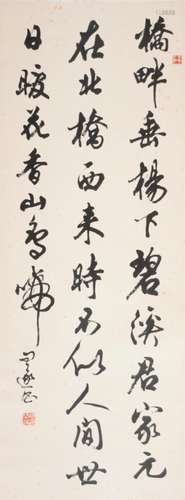 橋畔垂楊下碧溪君家元
在北橋西来時不似人間世
日暖花香山鳥啼